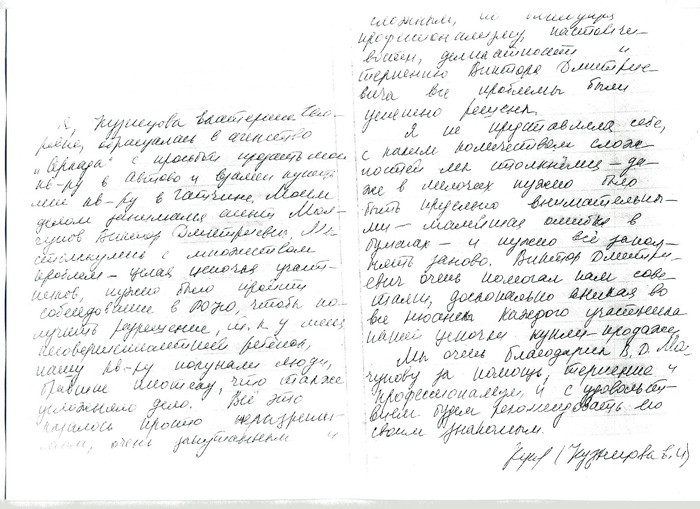 Я, Кузнецова Екатерина
обращалась в агенство
"Аркада" с просьбой продать мою
кв-ру в Автово и взамен купить
мне кв-ру в Гатчине. Моим
делом занимался агент
Виктор Дмитриевич. Мы
столкнулись с множеством
проблем – целая цепочка участ-
ников, нужно было пройти
собеседование в РОНО, чтобы по-
лучить разрешение, т. к у меня
несовершеннолетний ребёнок,
нашу кв-ру покупали люди,
бравшие ипотеку, что также
усложняло дело. Всё это
казалось просто неразреши-
мым, очень запутанным и
сложным, но
профессионализму, настойчи-
вости, деликатности и
терпению Виктора Дмитрие-
вича все проблемы были
успешно решены.
Я не представляла себе,
с каким количеством слож-
ностей мы столкнёмся – да-
же в мелочах нужно было
быть предельно внимательны-
ми – малейшая ошибка в
бумагах – и нужно всё запол-
нять заново. Виктор Дмитри-
евич очень помогал нам сове-
тами, досконально вникая во
все нюансы каждого участника
нашей цепочки купли-продажи.
Мы очень благодарны В. Д. Мо-
чунову за помощь, терпение и
профессионализм, и с удовольст-
вием будем рекомендовать его
своим знакомым.
(Кузнецова Е. И)